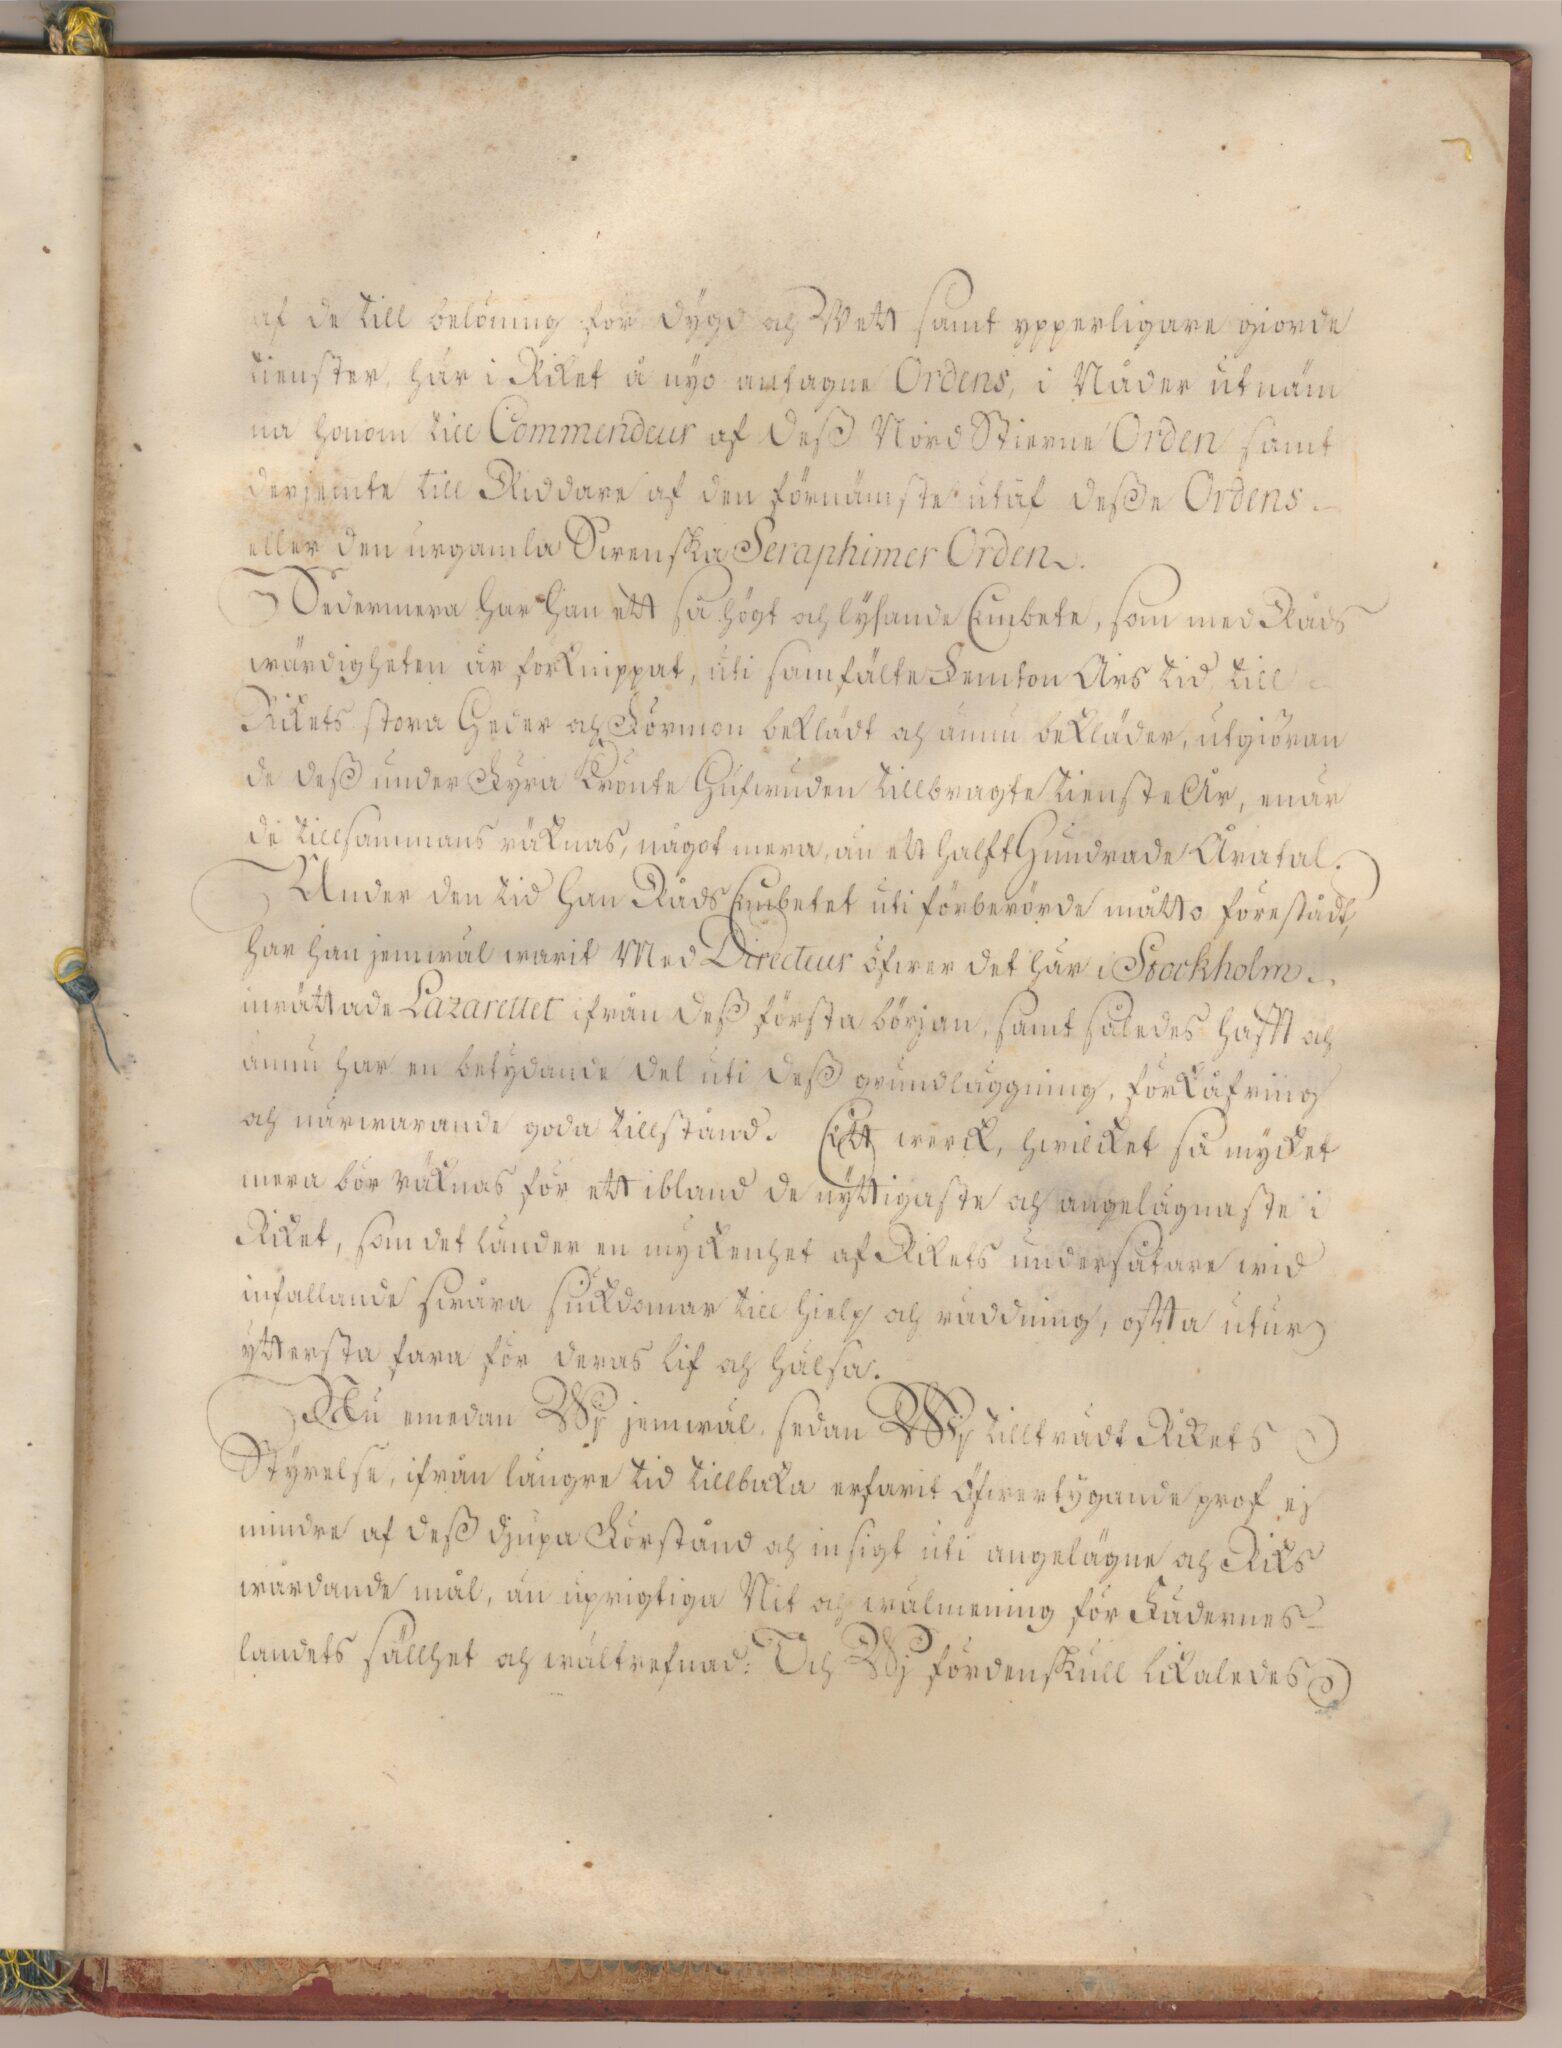 af de till belöning för dygd och Wett samt ypperligare giorde
tienster, här i Riket å nyo antagne Ordens, i Nåder utnäm
na honom till Commendeur af deß Nord Stierne Orden samt
derjemte till Riddare af den förnämste utaf deße Ordens
eller den urgamla Swenska Seraphimer Orden.
Sedermera har han ett så högt och lysande Embete, som med Råds
wärdigheten är förknippat, uti samfälte Femton Års tid, till
Rikets stora Heder och Förmon beklädt och ännu bekläder, utgiöran
de deß under Fyra Krönte Hufwuden tillbragte tienste År, enär
de tillsammans räknas, något mera, än ett halft Hundrade Åratal.
Under den tid Han Råds Embetet uti förberörde måtto förestådt,
har han jemwäl warit Med Directeur öfwer det här i Stockholm
inrättade Lazarettet ifrån deß första början, samt således hafft och
ännu har en betydande del uti deß grundläggning, förkåfring
och närwarande goda tillstånd. Ett werck, hwilcket så mycket
mera bör räknas för ett ibland de nyttigaste och angelägnaste i
Riket, som det länder en myckenhet af Rikets undersåtare wid
infallande swåra siuckdomar till hielp och räddning, offta utur
yttersta fara för deras lif och hälsa.
Nu emedan Wij jemwäl, sedan Wij tillträdt Rikets
Styrelse, ifrån längre tid tillbaka erfarit öfwertygande prof ej
mindre af deß djupa Förstånd och insigt uti angelägne och Riks
wårdande mål, än uprigtiga Nit och wälmening för Fädernes-
landets sällhet och wältrefnad: Och Wij fördenskull likaledes